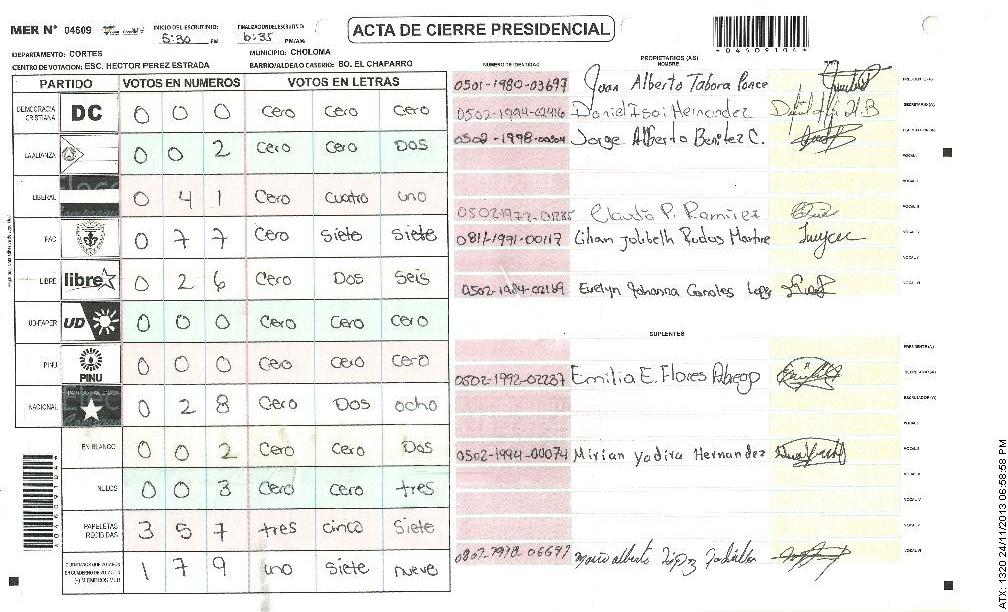 MER Nº 04609
INICIO DEL ESCRUTINIO: 5:30 PM
FINALIZACION DEL ESCRUTINIO: 6:35 PM/AM
ACTA DE CIERRE PRESIDENCIAL
DEPARTAMENTO: CORTES
MUNICIPIO: CHOLOMA
CENTRO DE VOTACION: ESC. HECTOR PEREZ ESTRADA
BARRIO/ALDEA O CASERIO: BO. EL CHAPARRO
PARTIDO VOTOS EN NUMEROS VOTOS EN LETRAS
DEMOCRACIA CRISTIANA DC 0 0 0 Cero Cero Cero
LA ALIANZA 0 0 2 Cero Cero Dos
LIBERAL 0 4 1 Cero Cuatro uno
PAC 0 7 7 Cero Siete Siete
LIBRE libre 0 2 6 Cero Dos Seis
UD-FAPER UD 0 0 0 Cero Cero Cero
PINU PINU 0 0 0 Cero Cero Cero
NACIONAL 0 2 8 Cero Dos ocho
EN BLANCO 0 0 2 Cero Cero Dos
NULOS 0 0 3 Cero Cero tres
PAPELETAS RECIBIDAS 3 5 7 tres cinco Siete
1 7 9 uno Siete nueve
NUMERO DE IDENTIDAD
PROPIETARIOS (AS)
NOMBRE
0501-1980-03697 Juan Alberto Tabora Ponce
PRESIDENTE(A)
0502-1994-02416 Daniel Isai Hernandez
SECRETARIO(A)
0502-1998-00504 Jorge Alberto Benitez C.
ESCRUTADOR(A)
VOCAL I
VOCAL II
Claudia P. Ramirez
VOCAL III
0811-1991-00117 Lilian Jolibeth Rodas
0502-1984-02169 Evelyn Johanna Canales Lopez
SUPLENTES
PRESIDENTE(A)
0502-1992-02237 Emilia E. Flores Abrego
SECRETARIO(A)
ESCRUTADOR(A)
0502-1994-00074 Mirian Yadira Hernandez
Mario alberto Lopez
*04609104*
ATX: 1320 24/11/2013 06:58:58 PM